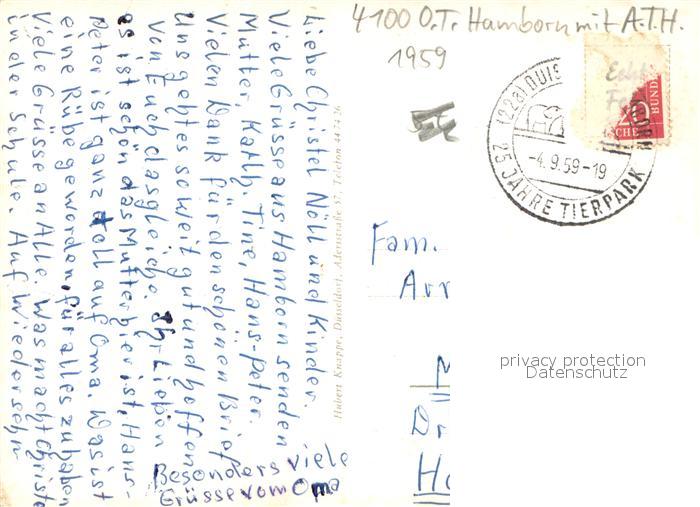 4100 O.T. Hamborn mit A.T.H.
1959
(22a) DUIS
-4.9.59-19
25 JAHRE TIERPARK
20
BUND
Liebe Christel Nöll und Kinder.
Viele Grüsse aus Hamborn senden
Mutter, Kath. Tine, Hans-Peter.
Vielen Dank für den schönen Brief
uns geht es soweit gut und hoffen
von Euch das gleiche. Ihr Lieben
es ist schön das Mutter hier ist, Hans-
Peter ist ganz toll auf Oma. Was ist
eine Rübe geworden, für alles zu haben
Viele Grüsse an Alle. Was macht Christe
in der Schule. Auf Wiedersehn
Besonders viele
Grüsse vom Oma
Hubert Knappe, Düsseldorf, Adersstraße 57, Telefon
Fam.
Arr
Dr
Ha
privacy protection
Datenschutz